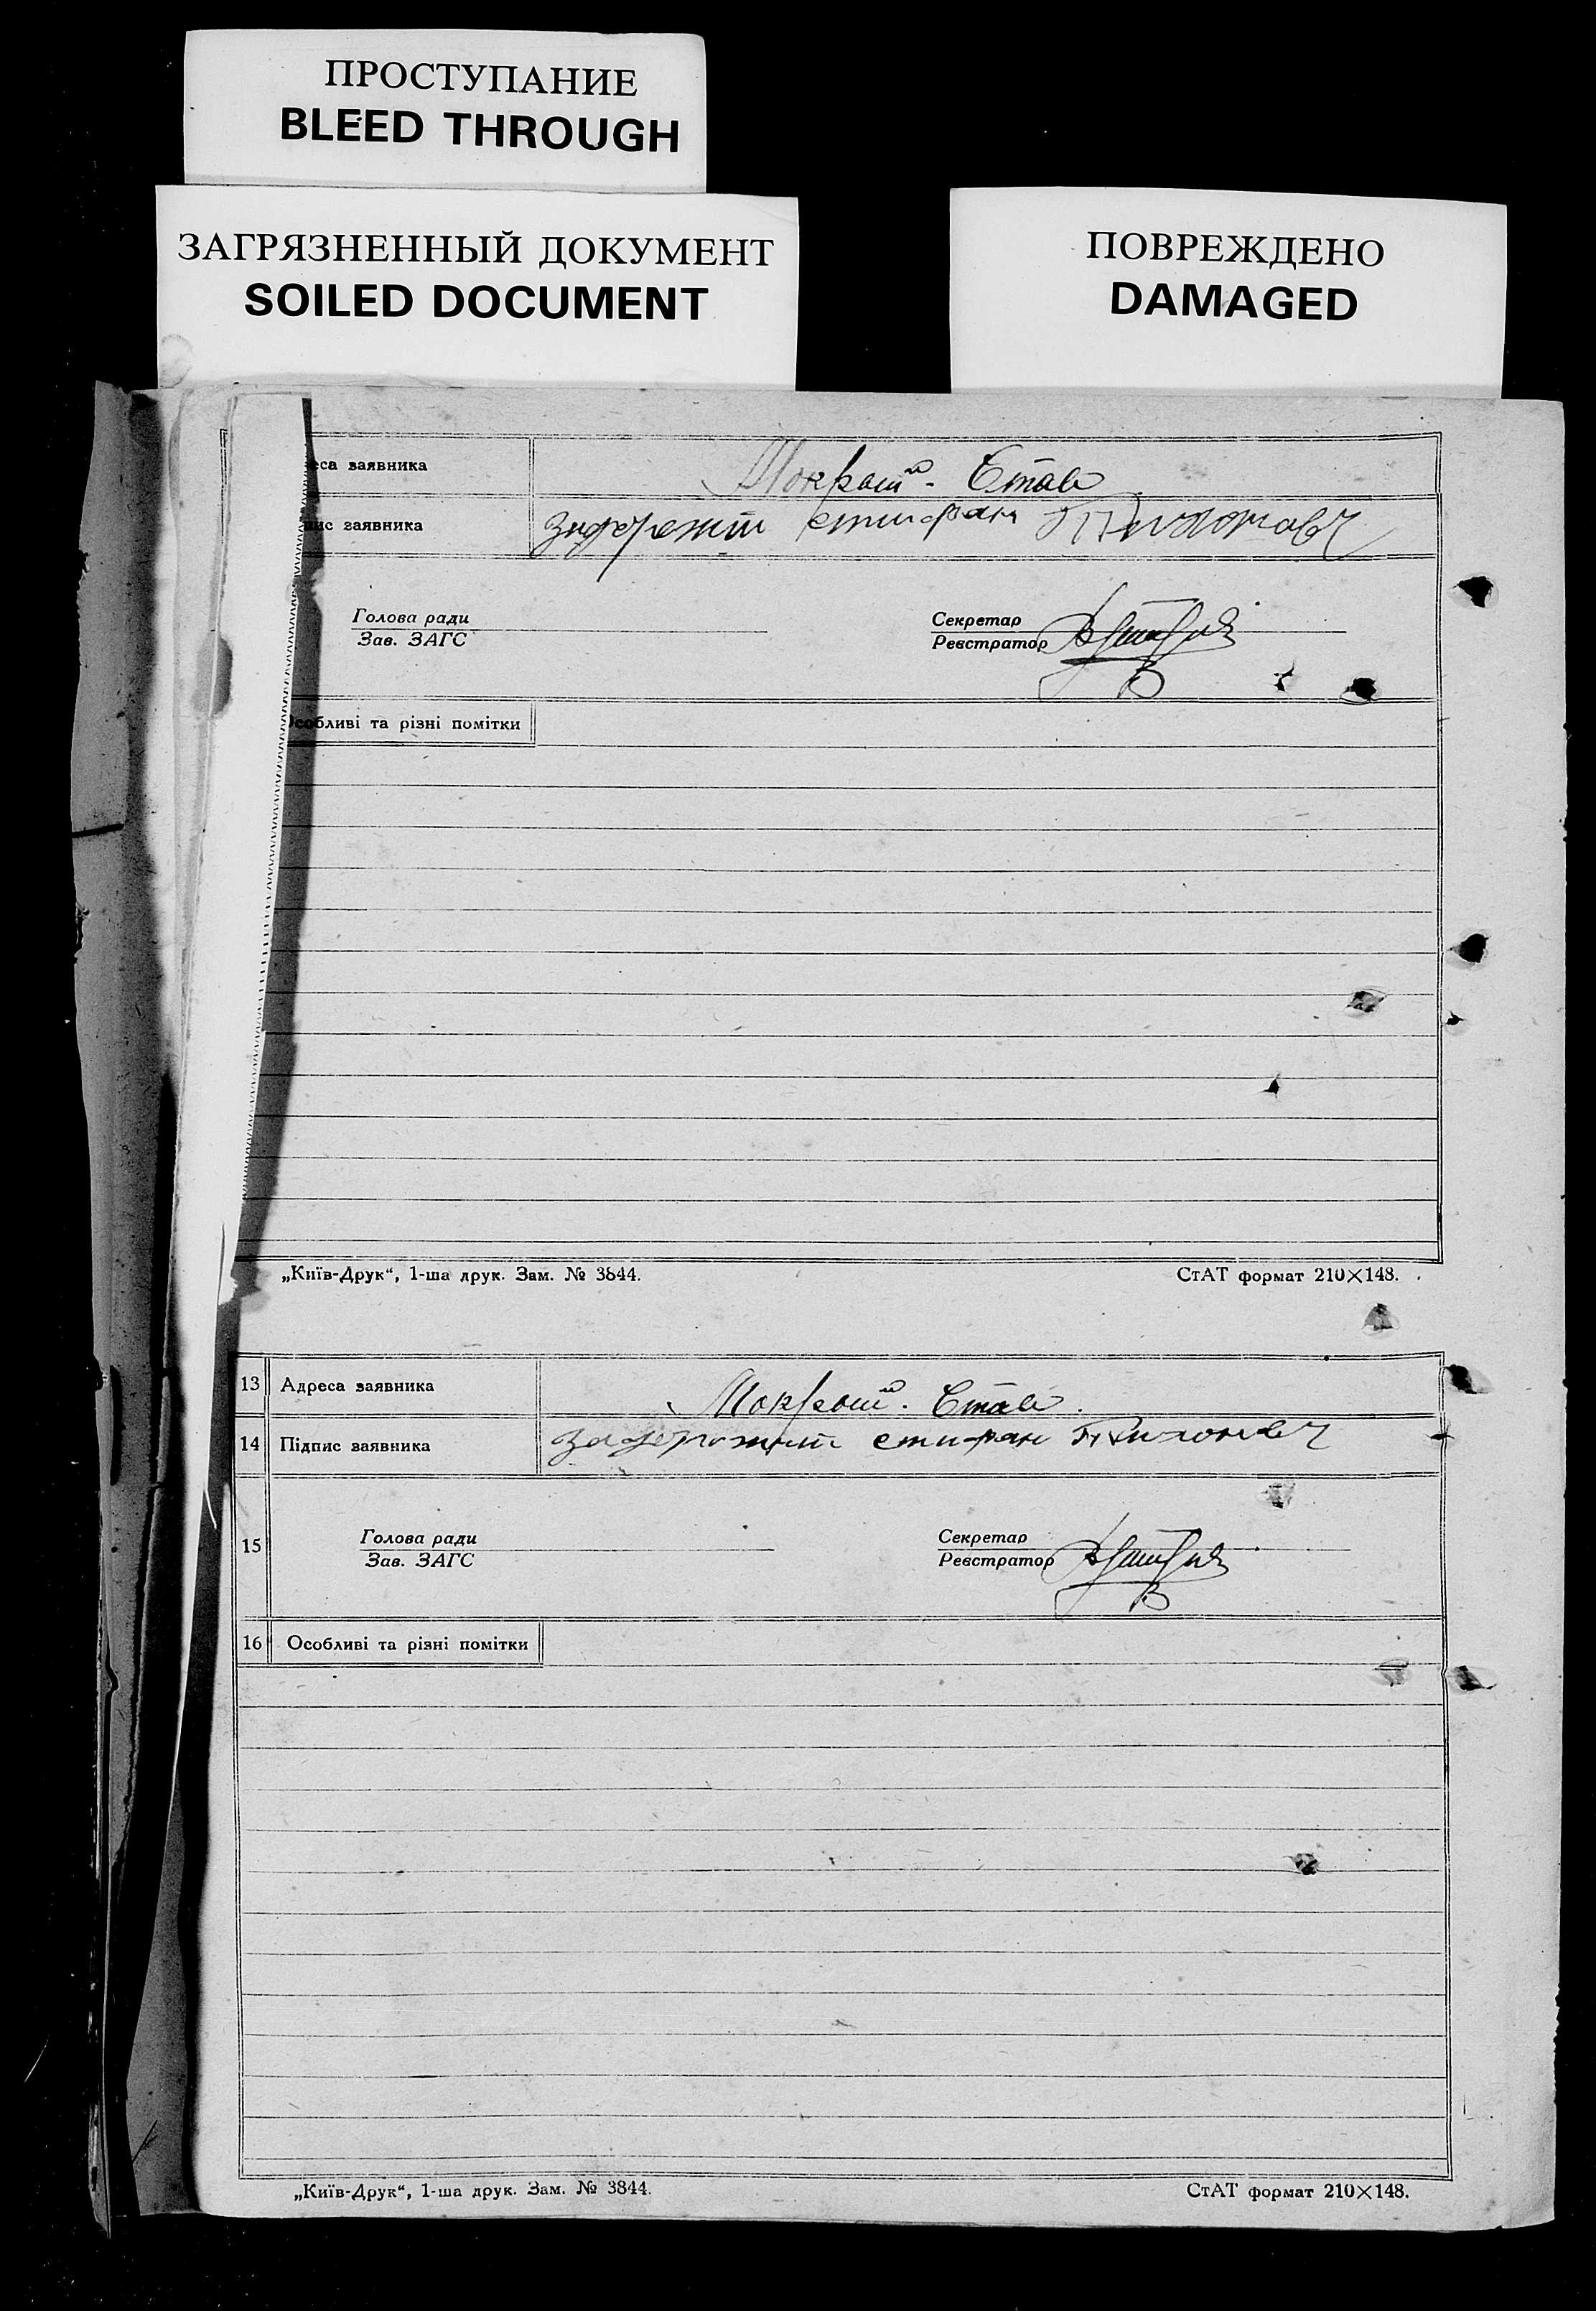 ПРОСТУПАНИЕ
BLEED THROUGH
ЗАГРЯЗНЕННЫЙ ДОКУМЕНТ
SOILED DOCUMENT
ПОВРЕЖДЕНО
DAMAGED
еса заявника Мокрый. Став
пис заявника Тихонович
Голова ради
Зав. ЗАГС
Секретар
Реєстратор
Особливі та різні помітки
„Київ-Друк“, 1-ша друк. Зам. № 3844.
СтАТ формат 210×148.
13 Адреса заявника Мокрый. Став.
14 Підпис заявника Тихонович
15 Голова ради
Зав. ЗАГС
Секретар
Реєстратор
16 Особливі та різні помітки
„Київ-Друк“, 1-ша друк. Зам. № 3844.
СтАТ формат 210×148.